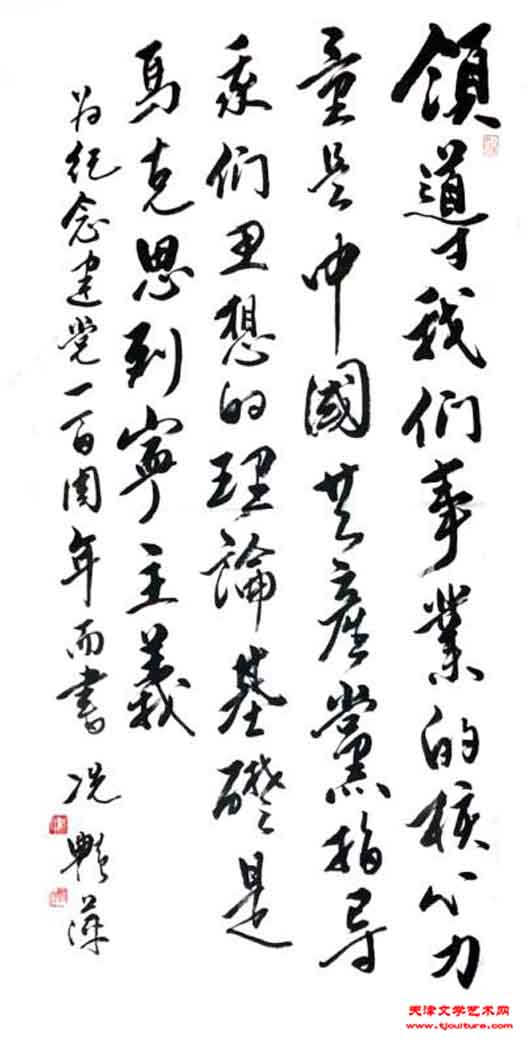 領導我們事業的核心力
量是中國共產黨指导
我们思想的理論基礎是
馬克思列寧主義
为纪念建党一百周年而書 况
天津文学艺术网
www.tjculture.com